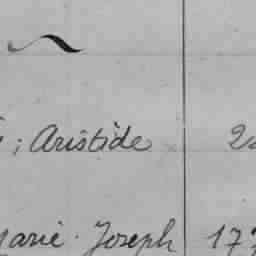 ; Aristide
Marie Joseph 17